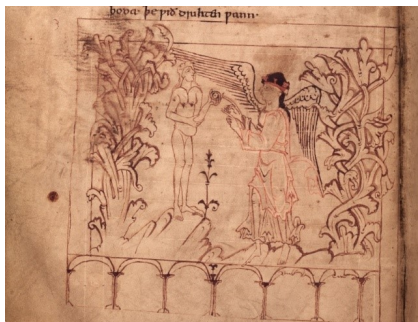 boda· þe ƿið drihten ƿann·